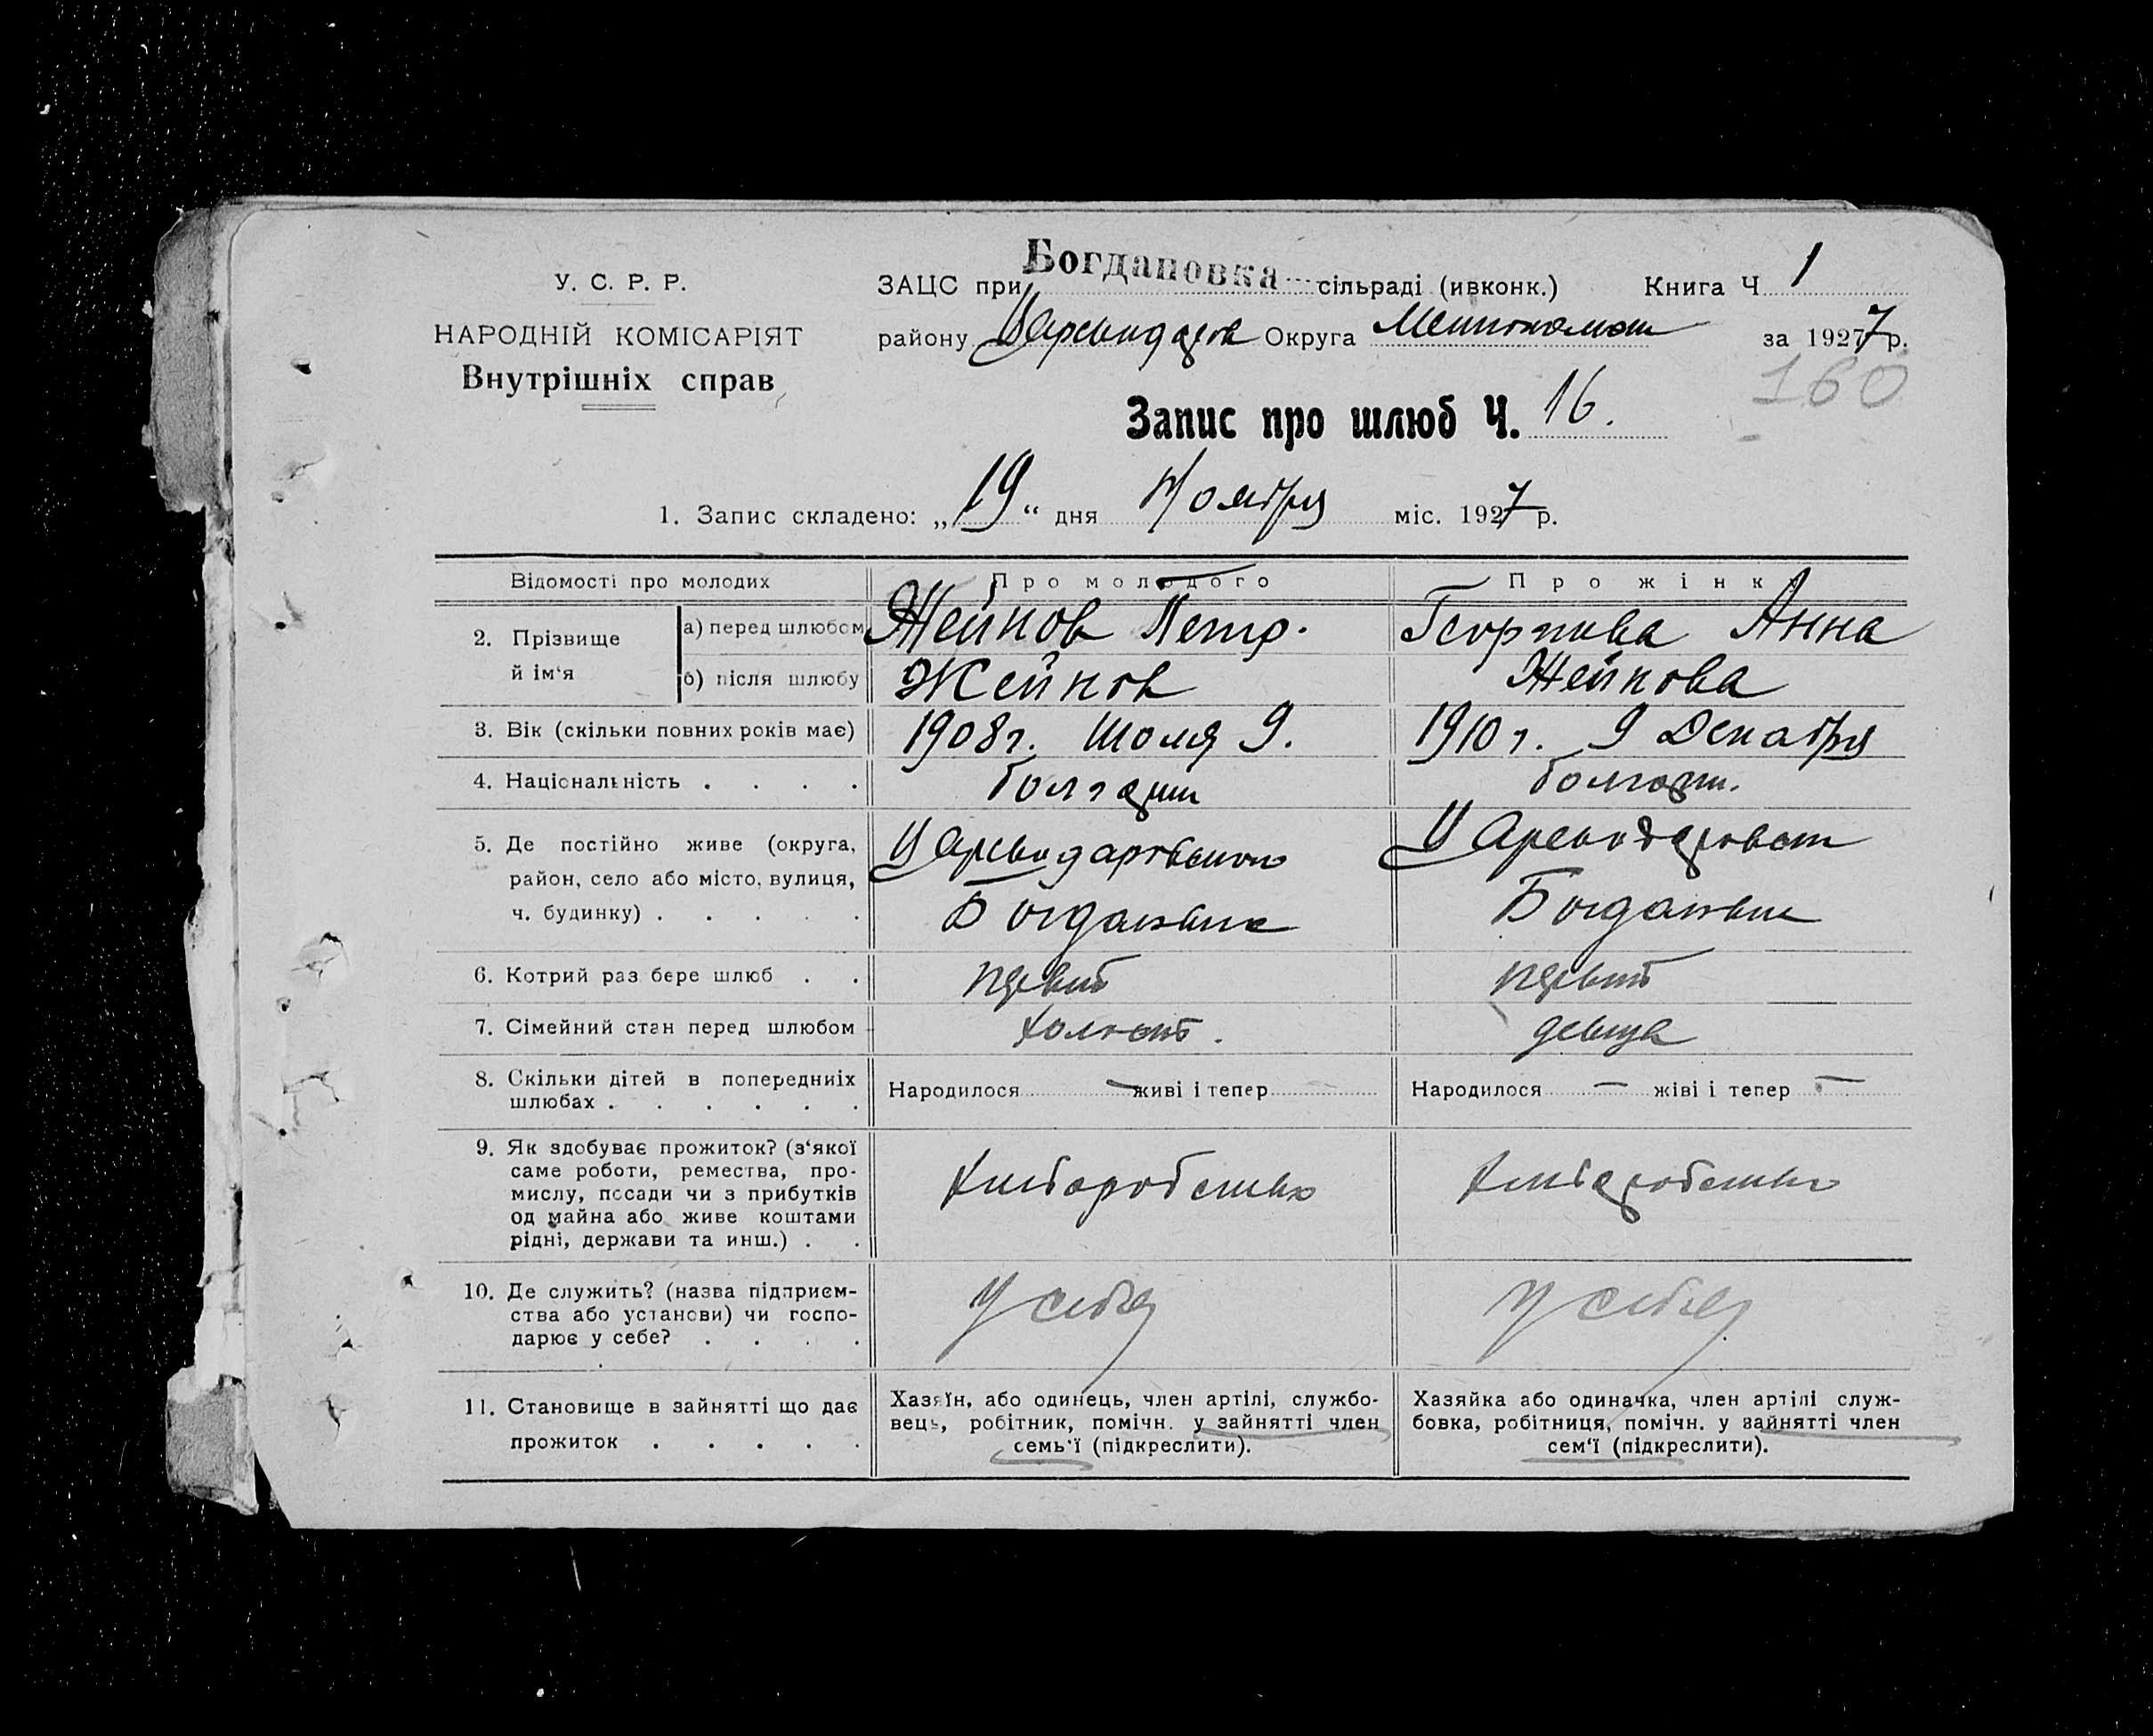 У. С. Р. Р.
НАРОДНІЙ КОМІСАРІЯТ
Внутрішніх справ
ЗАЦС при Богдановка сільраді (ивконк.) Книга Ч 1
району Округа за 1927 р.
160
Запис про шлюб Ч. 16.
1. Запис складено: „19“ дня Ноября міс. 1927 р.
Відомості про молодих Про молодого Про жінку
2. Прізвище й ім‘я
а) перед шлюбом Жейнов Петр. Георгиева Анна
б) після шлюбу Жейнов Жейнова
3. Вік (скільки повних років має) 1908 г. Июля 9. 1910 г. 9 Декабря
4. Національність . . . . болгарин болгарин.
5. Де постійно живе (округа,
район, село або місто, вулиця,
ч. будинку) . . . . .
Богдановка Богдановка
6. Котрий раз бере шлюб . . первый первый
7. Сімейний стан перед шлюбом холост. девица
8. Скільки дітей в попередниіх
шлюбах . . . . . .
Народилося — живі і тепер Народилося — жіві і тепер —
9. Як здобуває прожиток? (з‘якої
саме роботи, ремества, про-
мислу, посади чи з прибутків
од майна або живе коштами
рідні, держави та инш.) . .
хлеборобство хлеборобство
10. Де служить? (назва підприєм-
ства або установи) чи госпо-
дарює у себе? . . . .
У себя У себя
11. Становище в зайнятті що дає
прожиток . . . . .
Хазяїн, або одинець, член артілі, службо-
вець, робітник, помічн. у зайнятті член
семь‘ї (підкреслити).
Хазяйка або одиначка, член артілі служ-
бовка, робітниця, помічн. у зайнятті член
сем‘ї (підкреслити).